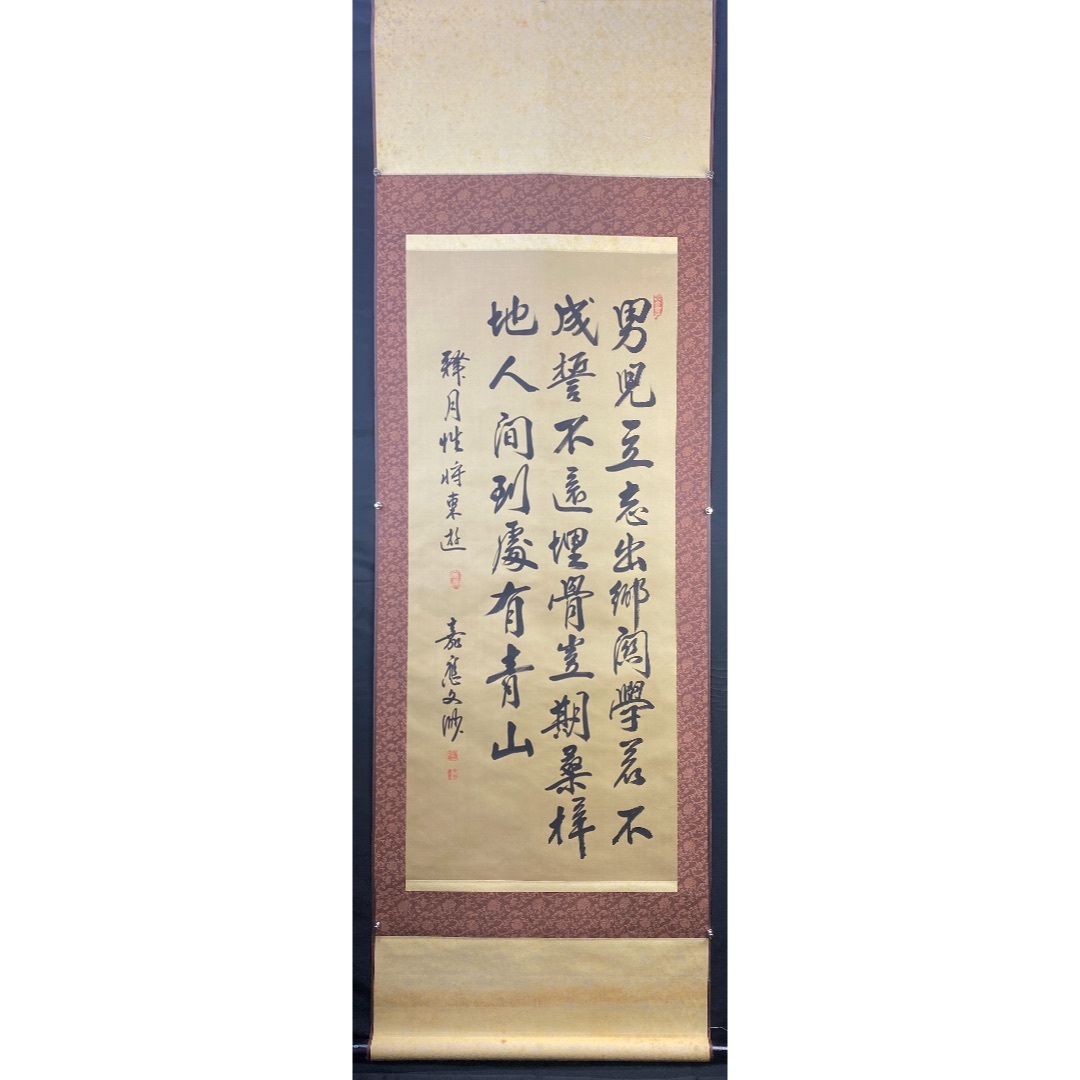 男児立志出郷関学若不
成誓不還埋骨豈期桑梓
地人間到處有青山
釋月性将東遊
嘉應文